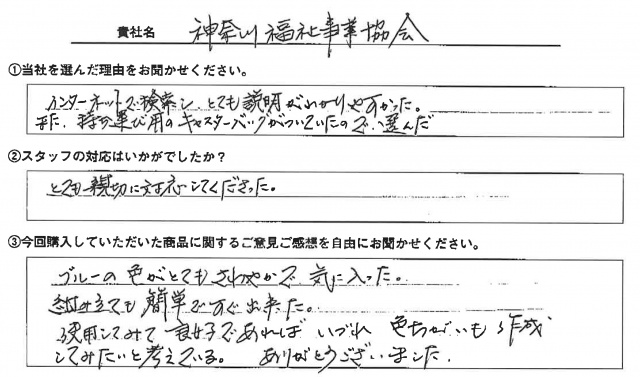 貴社名 神奈川福祉事業協会
①当社を選んだ理由をお聞かせください。
インターネットで検索し、とても説明がわかりやすかった。
また、持ち運び用のキャスターバッグがついていたので、選んだ
②スタッフの対応はいかがでしたか？
とても親切に対応してくださった。
③今回購入していただいた商品に関するご意見ご感想を自由にお聞かせください。
ブルーの色がとてもさわやかで気に入った。
組み立ても簡単ですぐ出来た。
使用してみて良好であればいづれ色ちがいも作成
してみたいと考えている。 ありがとうございました.